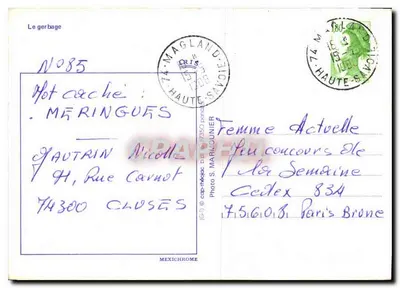 Le gerbage
N° 85
Mot caché :
MERINGUES
GAUTRIN Nicolle
71, Rue Carnot
74300 CLUSES
MEXICHROME
Photo S. MARMOUNIER
74 - MAGLAND
HAUTE-SAVOIE
74 - MAGLAND
HAUTE-SAVOIE
Femme Actuelle
Jeu concours de
la Semaine
Cedex 83A
75608 Paris Brune